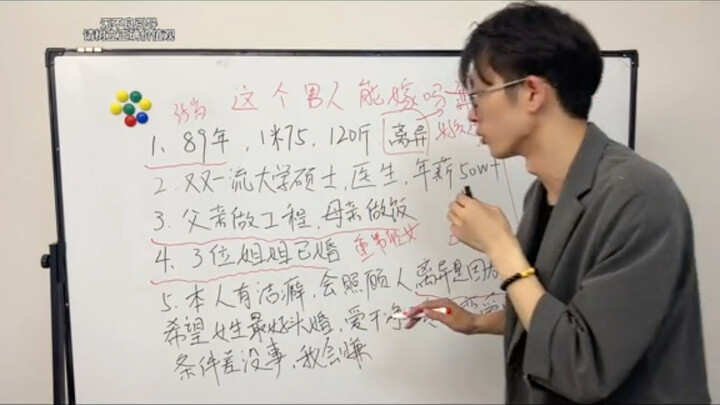 无不良引导
请树立正确价值观
这个男人能嫁吗
1、89年，1米75，120斤，离异
2、双一流大学硕士，医生，年薪50w+
3、父亲做工程，母亲做饭
4、3位姐姐已婚 重男轻女
5、本人有洁癖，会照顾人 离异是因为
希望女生最好头婚，爱干净
条件差没事，我会赚